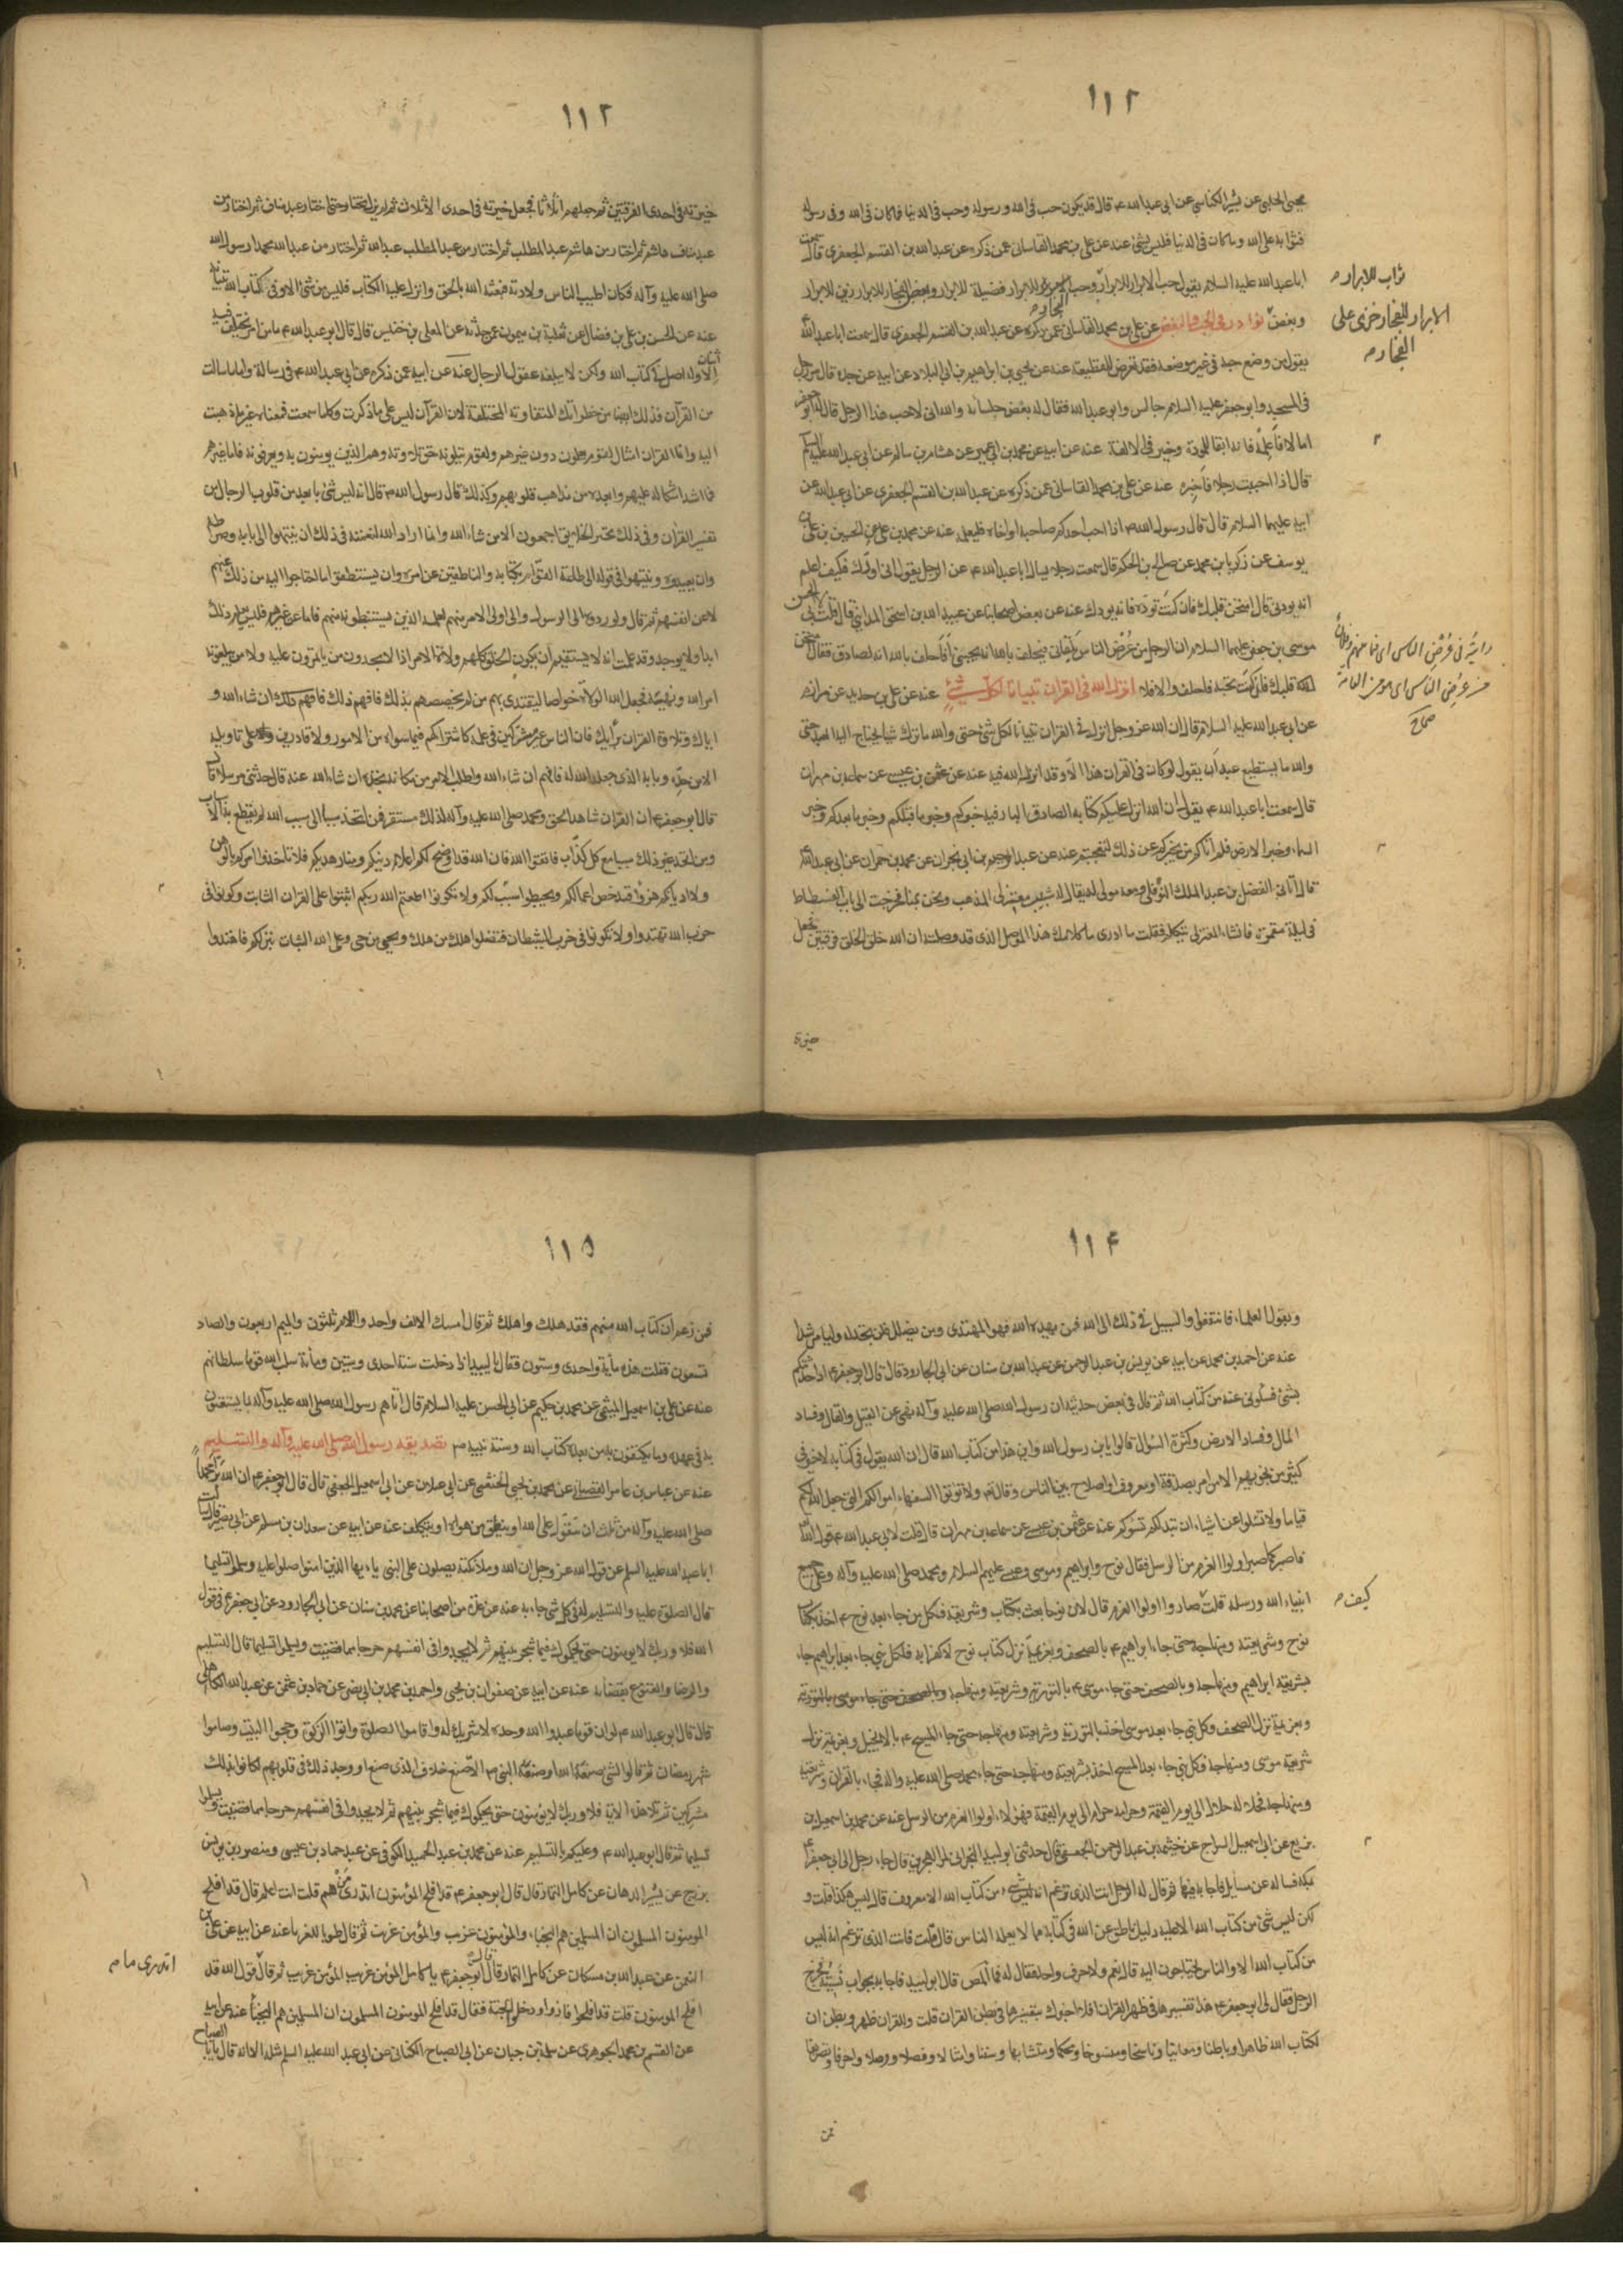 ١١٢
يحيى الحلبي عن بشير الكناسي عن ابي عبد الله ع قال قد يكون حب فى الله ورسوله وحب فى الدنيا فما كان فى الله وفى رسوله
فثوابه على الله وما كان فى الدنيا فليس بشئ عنه عن على بن محمد القاسانى عمن ذكره عن عبد الله بن القسم الجعفرى قال سمعت
ابا عبد الله عليه السلام يقول حب الابرار للابرار وحب للابرار فضيلة للابرار وبغض الفجار للابرار زين للابرار
وبغض نوادر فى الحب والبغض عن على بن محمد القاسانى عمن ذكره عن عبد الله بن القسم الجعفرى قال سمعت ابا عبد الله
يقول من وضع حبه فى غير موضعه فقد تعرض للقطيعة عنه عن يحيى بن ابراهيم بن ابى البلاد عن ابيه عن جده قال مر رجل
فى المسجد وابو جعفر عليه السلام جالس وابو عبد الله فقال له بعض جلسائه والله انى لاحب هذا الرجل قال له ابو جعفر
اما لا فاعلمه فانه ابقا للمودة وخير فى الالفة عنه عن ابيه عن محمد بن ابى عمير عن هشام بن سالم عن ابى عبد الله عليه السلام
قال اذا احببت رجلا فاخبره عنه عن على بن محمد القاسانى عمن ذكره عن عبد الله بن القسم الجعفرى عن ابى عبد الله عن
ابيه عليهما السلام قال قال رسول الله ص اذا احب احدكم صاحبه او اخاه فليعلمه عنه عن محمد بن على عن الحسين بن على بن
يوسف عن زكريا بن محمد عن صالح بن الحكم قال سمعت رجلا يسال ابا عبد الله ع عن الرجل يقول انى اودك فكيف اعلم
انه يودنى قال امتحن قلبك فان كنت توده فانه يودك عنه عن بعض اصحابنا عن عبيد الله بن اسحق المداينى قال قلت لابى الحسن
موسى بن جعفر عليهما السلام ان الرجل من عرض الناس يلقانى فيحلف بالله انه يحبنى فاحلف بالله انه لصادق فقال امتحن
قلبك فان كنت تحبه فاحلف والا فلا انزل الله فى القرآن تبيانا لكل شئ عنه عن على بن حديد عن مرازم
عن ابى عبد الله عليه السلام قال ان الله عز وجل انزل فى القران تبيانا لكل شئ حتى والله ما ترك شيا يحتاج اليه العبد حتى
والله ما يستطيع عبد ان يقول لو كان فى القران هذا الا وقد انزله الله فيه عنه عن عثمن بن عيسى عن سماعه بن مهران
قال سمعت ابا عبد الله ع يقول ان الله انزل عليكم كتابه الصادق البار فيه خبركم وخبر ما قبلكم وخبر ما بعدكم وخبر
السماء وخبر الارض فلو اتاكم من يخبركم عن ذلك لتعجبتم عنه عن عبد الرحمن بن ابى نجران عن محمد بن حمران عن ابى عبد الله
قال اتانى الفضل بن عبد الملك النوفلى ومعه مولى له يقال له شبيب معتزلى المذهب ونحن بمنا فخرجت الى باب الفسطاط
فى ليلة مقمرة فانشاء المعتزلى يتكلم فقلت ما ادرى ما كلامك هذا الموصل الذى قد وصلته ان الله خلق الخلق فرقتين فجعل
خيرة
ثواب للابرار
الابرار للفجار خزى على
الفجار
صحاح
١١٢
خيرته فى احدى الفرقتين ثم جعلهم اثلاثا فجعل خيرته فى احدى الاثلاث ثم لم يزل يختار حتى اختار عبد مناف ثم اختار من
عبد مناف هاشم ثم اختار من هاشم عبد المطلب ثم اختار من عبد المطلب عبد الله ثم اختار من عبد الله محمدا رسول الله
صلى الله عليه وآله فكان اطيب الناس ولادة فبعثه الله بالحق وانزل عليه الكتاب فليس من شئ الا وفى كتاب الله تبيانه
عنه عن الحسن بن على بن فضال عن ثعلبة بن ميمون عمن حدثه عن المعلى بن خنيس قال قال ابو عبد الله ع ما من امر يختلف فيه
اثنان الا وله اصل فى كتاب الله ولكن لا يبلغه عقول الرجال عنه عن ابيه عمن ذكره عن ابى عبد الله ع فى رسالة واما ما سالت
من القرآن فذلك ايضا من خطراتك المتفاوتة المختلفة لان القرآن ليس على ما ذكرت وكلما سمعت فمعناه غير ما ذهبت
اليه وانما القران امثال لقوم يعلمون دون غيرهم ولقوم يتلونه حق تلاوته وهم الذين يومنون به ويعرفونه فاما غيرهم
فما اشد اشكاله عليهم وابعده من مذاهب قلوبهم وكذلك قال رسول الله ص قال انه ليس شئ بابعد من قلوب الرجال من
تفسير القران وفى ذلك تحير الخلايق اجمعون الا من شاء الله وانما اراد الله بتعميته فى ذلك ان ينتهوا الى بابه وصراطه
وان يعبدوه وينتهوا فى قوله الى طاعة القوام بكتابه والناطقين عن امره وان يستنطقوا ما احتاجوا اليه من ذلك عنهم
لا عن انفسهم ثم قال ولو ردوه الى الرسول والى اولى الامر منهم لعلمه الذين يستنبطونه منهم فاما عن غيرهم فليس يعلم ذلك
ابدا ولا يوجد وقد علمت انه لا يستقيم ان يكون الخلق كلهم ولاة الامر اذا لا يجدون من ياتمرون عليه ولا من يبلغونه
امر الله ونهيه فجعل الله الولاة خواصا ليقتدى بهم من لم يخصصهم بذلك فافهم ذلك ان شاء الله و
اياك وتلاوة القران برأيك فان الناس غير مشتركين فى علمه كاشتراكهم فيما سواه من الامور ولا قادرين عليه ولا على تاويله
الا من حده وبابه الذى جعله الله له فافهم ان شاء الله واطلب الامر من مكانه تجده ان شاء الله عنه قال حدثنى مرسلا قال
قال ابو جعفر ع ان القران شاهد الحق ومحمد صلى الله عليه وآله لذلك مستقر فمن اتخذ سببا الى سبب الله لم يقطع به الاسباب
ومن اتخذ غير ذلك سببا مع كل كذاب فاتقوا الله فان الله قد اوضح لكم اعلام دينكم ومنار هديكم فلا تاخذوا امركم بالوهن
ولا اديانكم هزوا فتدحض اعمالكم وتخبطوا سبيلكم ولا تكونوا اطعتم الله ربكم اثبتوا على القران الثابت وكونوا فى
حزب الله تهتدوا ولا تكونوا فى حزب الشيطان فتضلوا يهلك من هلك ويحيى من حى وعلى الله البيان بين لكم فاهتدوا
١١٤
وبقول العلماء فانتفعوا والسبيل فى ذلك الى الله فمن يهده الله فهو المهتدى ومن يضلل فلن تجد له وليا مرشدا
عنه عن احمد بن محمد عن ابيه عن يونس بن عبد الرحمن عن عبد الله بن سنان عن ابى الجارود قال قال ابو جعفر ع اذا حدثتكم
بشئ فسلونى عنه من كتاب الله ثم قال فى بعض حديثه ان رسول الله صلى الله عليه وآله نهى عن القيل والقال وفساد
المال وفساد الارض وكثرة السؤال قالوا يا بن رسول الله واين هذا من كتاب الله قال ان الله يقول فى كتابه لا خير فى
كثير من نجويهم الا من امر بصدقة او معروف او اصلاح بين الناس وقال ولا توتوا السفهاء اموالكم التى جعل الله لكم
قياما ولا تسئلوا عن اشياء ان تبد لكم تسؤكم عنه عن عثمن بن عيسى عن سماعه بن مهران قال قلت لابى عبد الله ع قول الله
فاصبر كما صبر اولوا العزم من الرسل فقال نوح وابراهيم وموسى وعيسى عليهم السلام ومحمد صلى الله عليه وآله وعلى جميع
انبياء الله ورسله قلت صاروا اولوا العزم قال لان نوحا بعث بكتاب وشريعة فكل من جاء بعد نوح ع اخذ بكتاب
نوح وشريعته ومنهاجه حتى جاء ابراهيم ع بالصحف وبعزيمة ترك كتاب نوح لا كفرا به فكل نبى جاء بعد ابراهيم جاء
بشريعة ابراهيم ومنهاجه وبالصحف حتى جاء موسى ع بالتورية وشريعته ومنهاجه وبالصحف حتى جاء موسى بالتورية
وبعزيمة ترك الصحف وكل نبى جاء بعد موسى اخذ بالتورية وشريعته ومنهاجه حتى جاء المسيح ع بالانجيل وبعزيمة ترك
شريعة موسى ومنهاجه فكل نبى جاء بعد المسيح اخذ بشريعته ومنهاجه حتى جاء محمد صلى الله عليه واله فجاء بالقران وشريعته
ومنهاجه فحلاله حلال الى يوم القيمة وحرامه حرام الى يوم القيمة فهولاء اولوا العزم من الرسل عنه عن محمد بن اسمعيل بن
بزيع عن ابى اسمعيل السراج عن خثيمة بن عبد الرحمن الجعفى قال حدثنى ابو لبيد البحرانى قال جاء رجل الى ابى جعفر ع
بمكة فساله عن مسائل فاجابه فيها ثم قال له الرجل انت الذى تزعم انه ليس شئ من كتاب الله الا معروف قال ليس هكذا قلت و
لكن ليس شئ من كتاب الله الا عليه دليل ناطق عن الله فى كتابه مما لا يعلمه الناس قال قلت فانت الذى تزعم انه ليس
من كتاب الله الا والناس يحتاجون اليه قال نعم ولا حرف واحد فقال له فما المص قال ابو لبيد فاجابه بجواب نسيته فخرج
الرجل فقال لى ابو جعفر ع هذا تفسيرها فى ظهر القران افلا اخبرك بتفسيرها فى بطن القران قلت وللقران ظهر وبطن ان
لكتاب الله ظاهرا وباطنا ومعاينا وناسخا ومنسوخا ومحكما ومتشابها وسننا وامثالا وفصلا ووصلا واحرفا وتصريفا
فمن
كيف
١١٥
فمن زعم ان كتاب الله مبهم فقد هلك واهلك ثم قال امسك الالف واحد واللام ثلثون والميم اربعون والصاد
تسعون فقلت هذه مأية واحدى وستون فقال يا لبيد اذا دخلت سنة احدى وستين ومأية سلب الله قوما سلطانهم
عنه عن على بن اسمعيل الميثمى عن محمد بن حكيم عن ابى الحسن عليه السلام قال اتاهم رسول الله صلى الله عليه وآله بما يستغنون
به فى عهده وما يكتفون به من بعده كتاب الله وسنة نبيه ص تصديق رسول الله صلى الله عليه وآله والتسليم
عنه عن عباس بن عامر القصبانى عن محمد بن يحيى الخثعمى عن ابى غيلان عن ابى اسمعيل الجعفى قال قال ابو جعفر ع ان الله برأ محمدا
صلى الله عليه وآله من ثلث ان يتقول على الله او ينطق من هواه او يتكلف عنه عن ابيه عن سعدان بن مسلم عن ابى بصير قال سالت
ابا عبد الله عليه السلم عن قول الله عز وجل ان الله وملائكته يصلون على النبى ياءيها الذين امنوا صلوا عليه وسلموا تسليما
قال الصلوة عليه والتسليم له فى كل شئ جاء به عنه عن عدة من اصحابنا عن محمد بن سنان عن ابى الجارود عن ابى جعفر ع فى قول
الله فلا وربك لا يومنون حتى يحكموك فيما شجر بينهم ثم لا يجدوا فى انفسهم حرجا مما قضيت ويسلموا تسليما قال التسليم
والرضا والقنوع بقضائه عنه عن ابيه عن صفوان بن يحيى واحمد بن محمد بن ابى نصر عن حماد بن عثمن عن عبد الله الكاهلى
قال قال ابو عبد الله ع لو ان قوما عبدوا الله وحده لا شريك له واقاموا الصلوة واتوا الزكوة وحجوا البيت وصاموا
شهر رمضان ثم قالوا لشئ صنعه الله او صنعه النبى ص الا صنع خلاف الذى صنع او وجدوا ذلك فى قلوبهم لكانوا بذلك
مشركين ثم تلا هذه الاية فلا وربك لا يؤمنون حتى يحكموك فيما شجر بينهم ثم لا يجدوا فى انفسهم حرجا مما قضيت ويسلموا
تسليما ثم قال ابو عبد الله ع وعليكم بالتسليم عنه عن محمد بن عبد الحميد الكوفى عن حماد بن عيسى ومنصور بن يونس
بزرج عن بشير الدهان عن كامل التمار قال قال ابو جعفر ع قد افلح المؤمنون اتدرى من هم قلت انت اعلم قال قد افلح
المومنون المسلمون ان المسلمين هم النجباء والمؤمنون غريب والمؤمن غريب ثم قال طوبا للغرباء عنه عن ابيه عن على بن
النعمن عن عبد الله بن مسكان عن كامل التمار قال قال ابو جعفر ع يا كامل المؤمن غريب المؤمن غريب ثم قال قول الله قد
افلح المومنون قلت قد افلحوا فازوا ودخلوا الجنة فقال قد افلح المومنون المسلمون ان المسلمين هم النجباء عنه عن ابيه
عن القسم بن محمد الجوهرى عن سلمة بن حيان عن ابى الصباح الكنانى عن ابى عبد الله عليه السلم مثله الا انه قال يا ابا الصباح
اتدرى ما